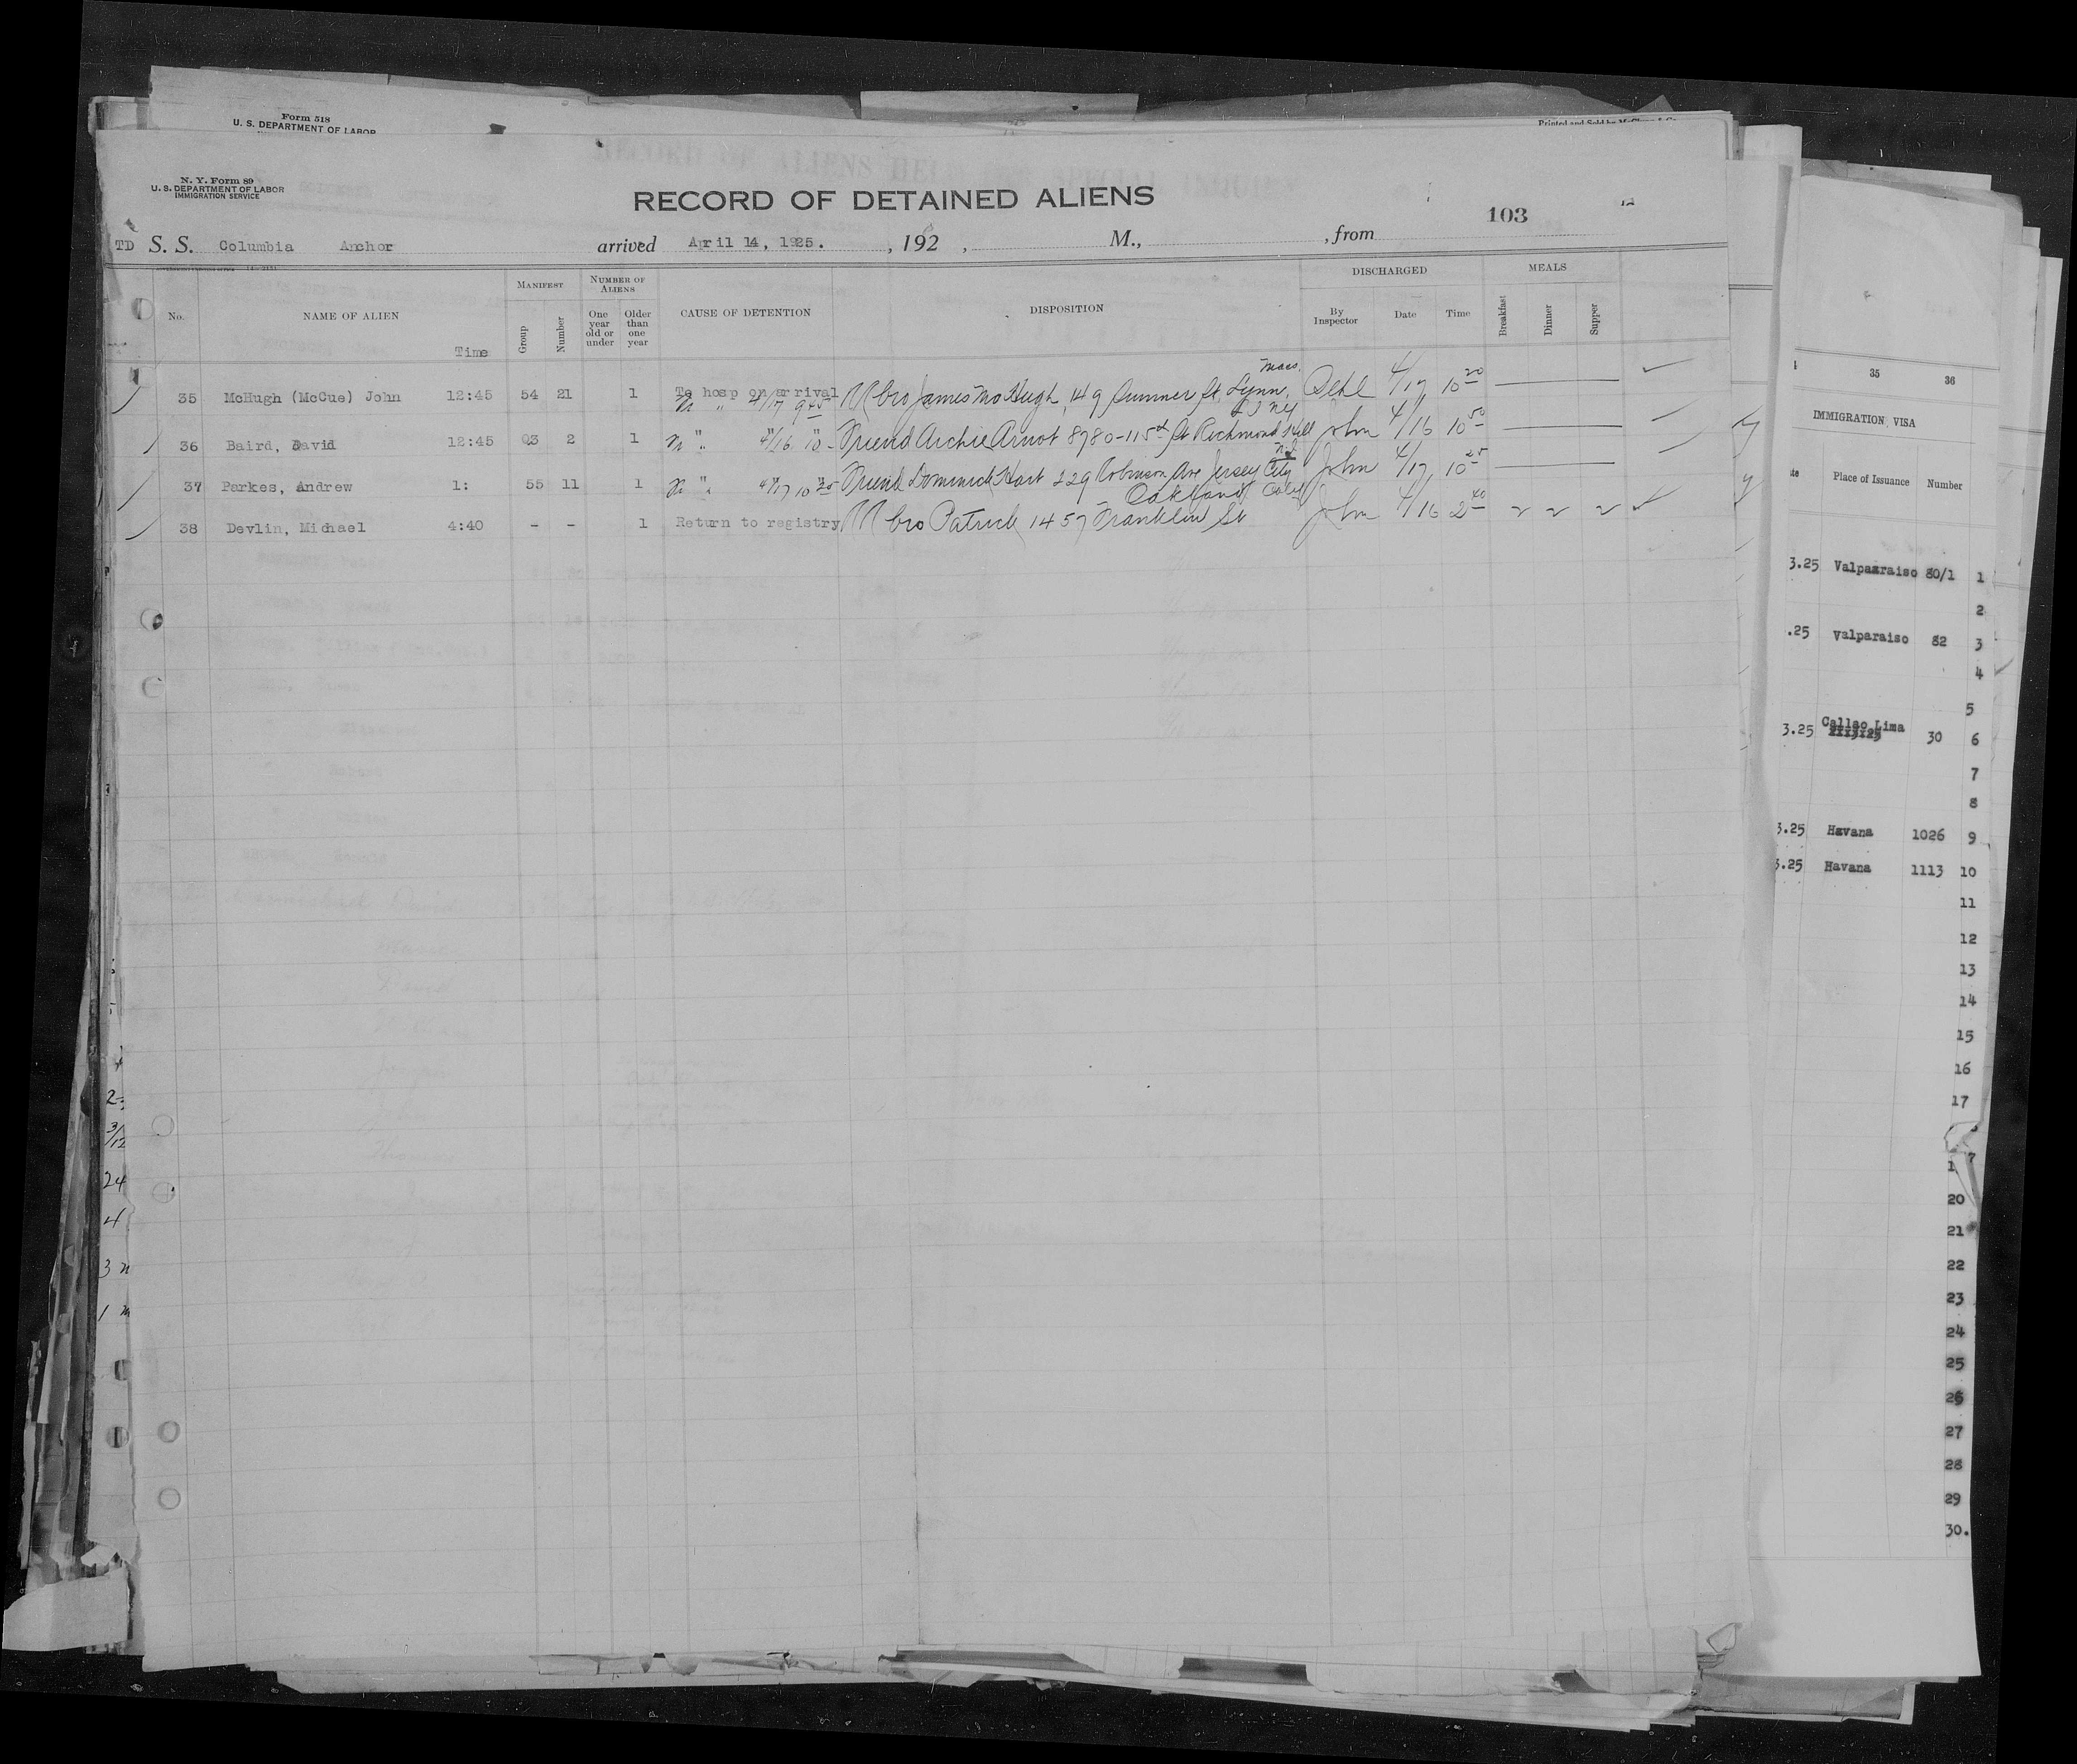 Form 518
U. S. DEPARTMENT OF LABOR
Printed and Sold by
N. Y. Form 89
U. S. DEPARTMENT OF LABOR
IMMIGRATION SERVICE
RECORD OF DETAINED ALIENS
103
TD S. S. Columbia Anchor arrived April 14, 1925. , 192 , M., , from
No. NAME OF ALIEN Time MANIFEST Group Number NUMBER OF ALIENS One year old or under Older than one year CAUSE OF DETENTION DISPOSITION DISCHARGED By Inspector Date Time MEALS Breakfast Dinner Supper
Mass.
35 McHugh (McCue) John 12:45 54 21 1 To hosp on arrival bro James McHugh, 149 Summer St Lynn, 4/17 10 20
" 4/17 9 45 L I NY
36 Baird, David 12:45 03 2 1 " " 4/16 10 - Friend Archie Arnot 8780-115th St Richmond Hill John 4/16 10 50
N J
37 Parkes, Andrew 1: 55 11 1 " " 4/17 10 25 Friend Dominick Hart 229 Robinson Ave Jersey City John 4/17 10 25
Oakland Calif
38 Devlin, Michael 4:40 - - 1 Return to registry bro Patrick 1457 Franklin St John 4/16 2 40
35 36
IMMIGRATION VISA
Place of Issuance Number
3.25 Valpaaraiso 80/1 1
2
.25 Valparaiso 82 3
4
5
3.25 Callao Lima 30 6
7
8
3.25 Havana 1026 9
3.25 Havana 1113 10
11
12
13
14
15
16
17
20
21
22
23
24
25
26
27
28
29
30.
24
4
3
1